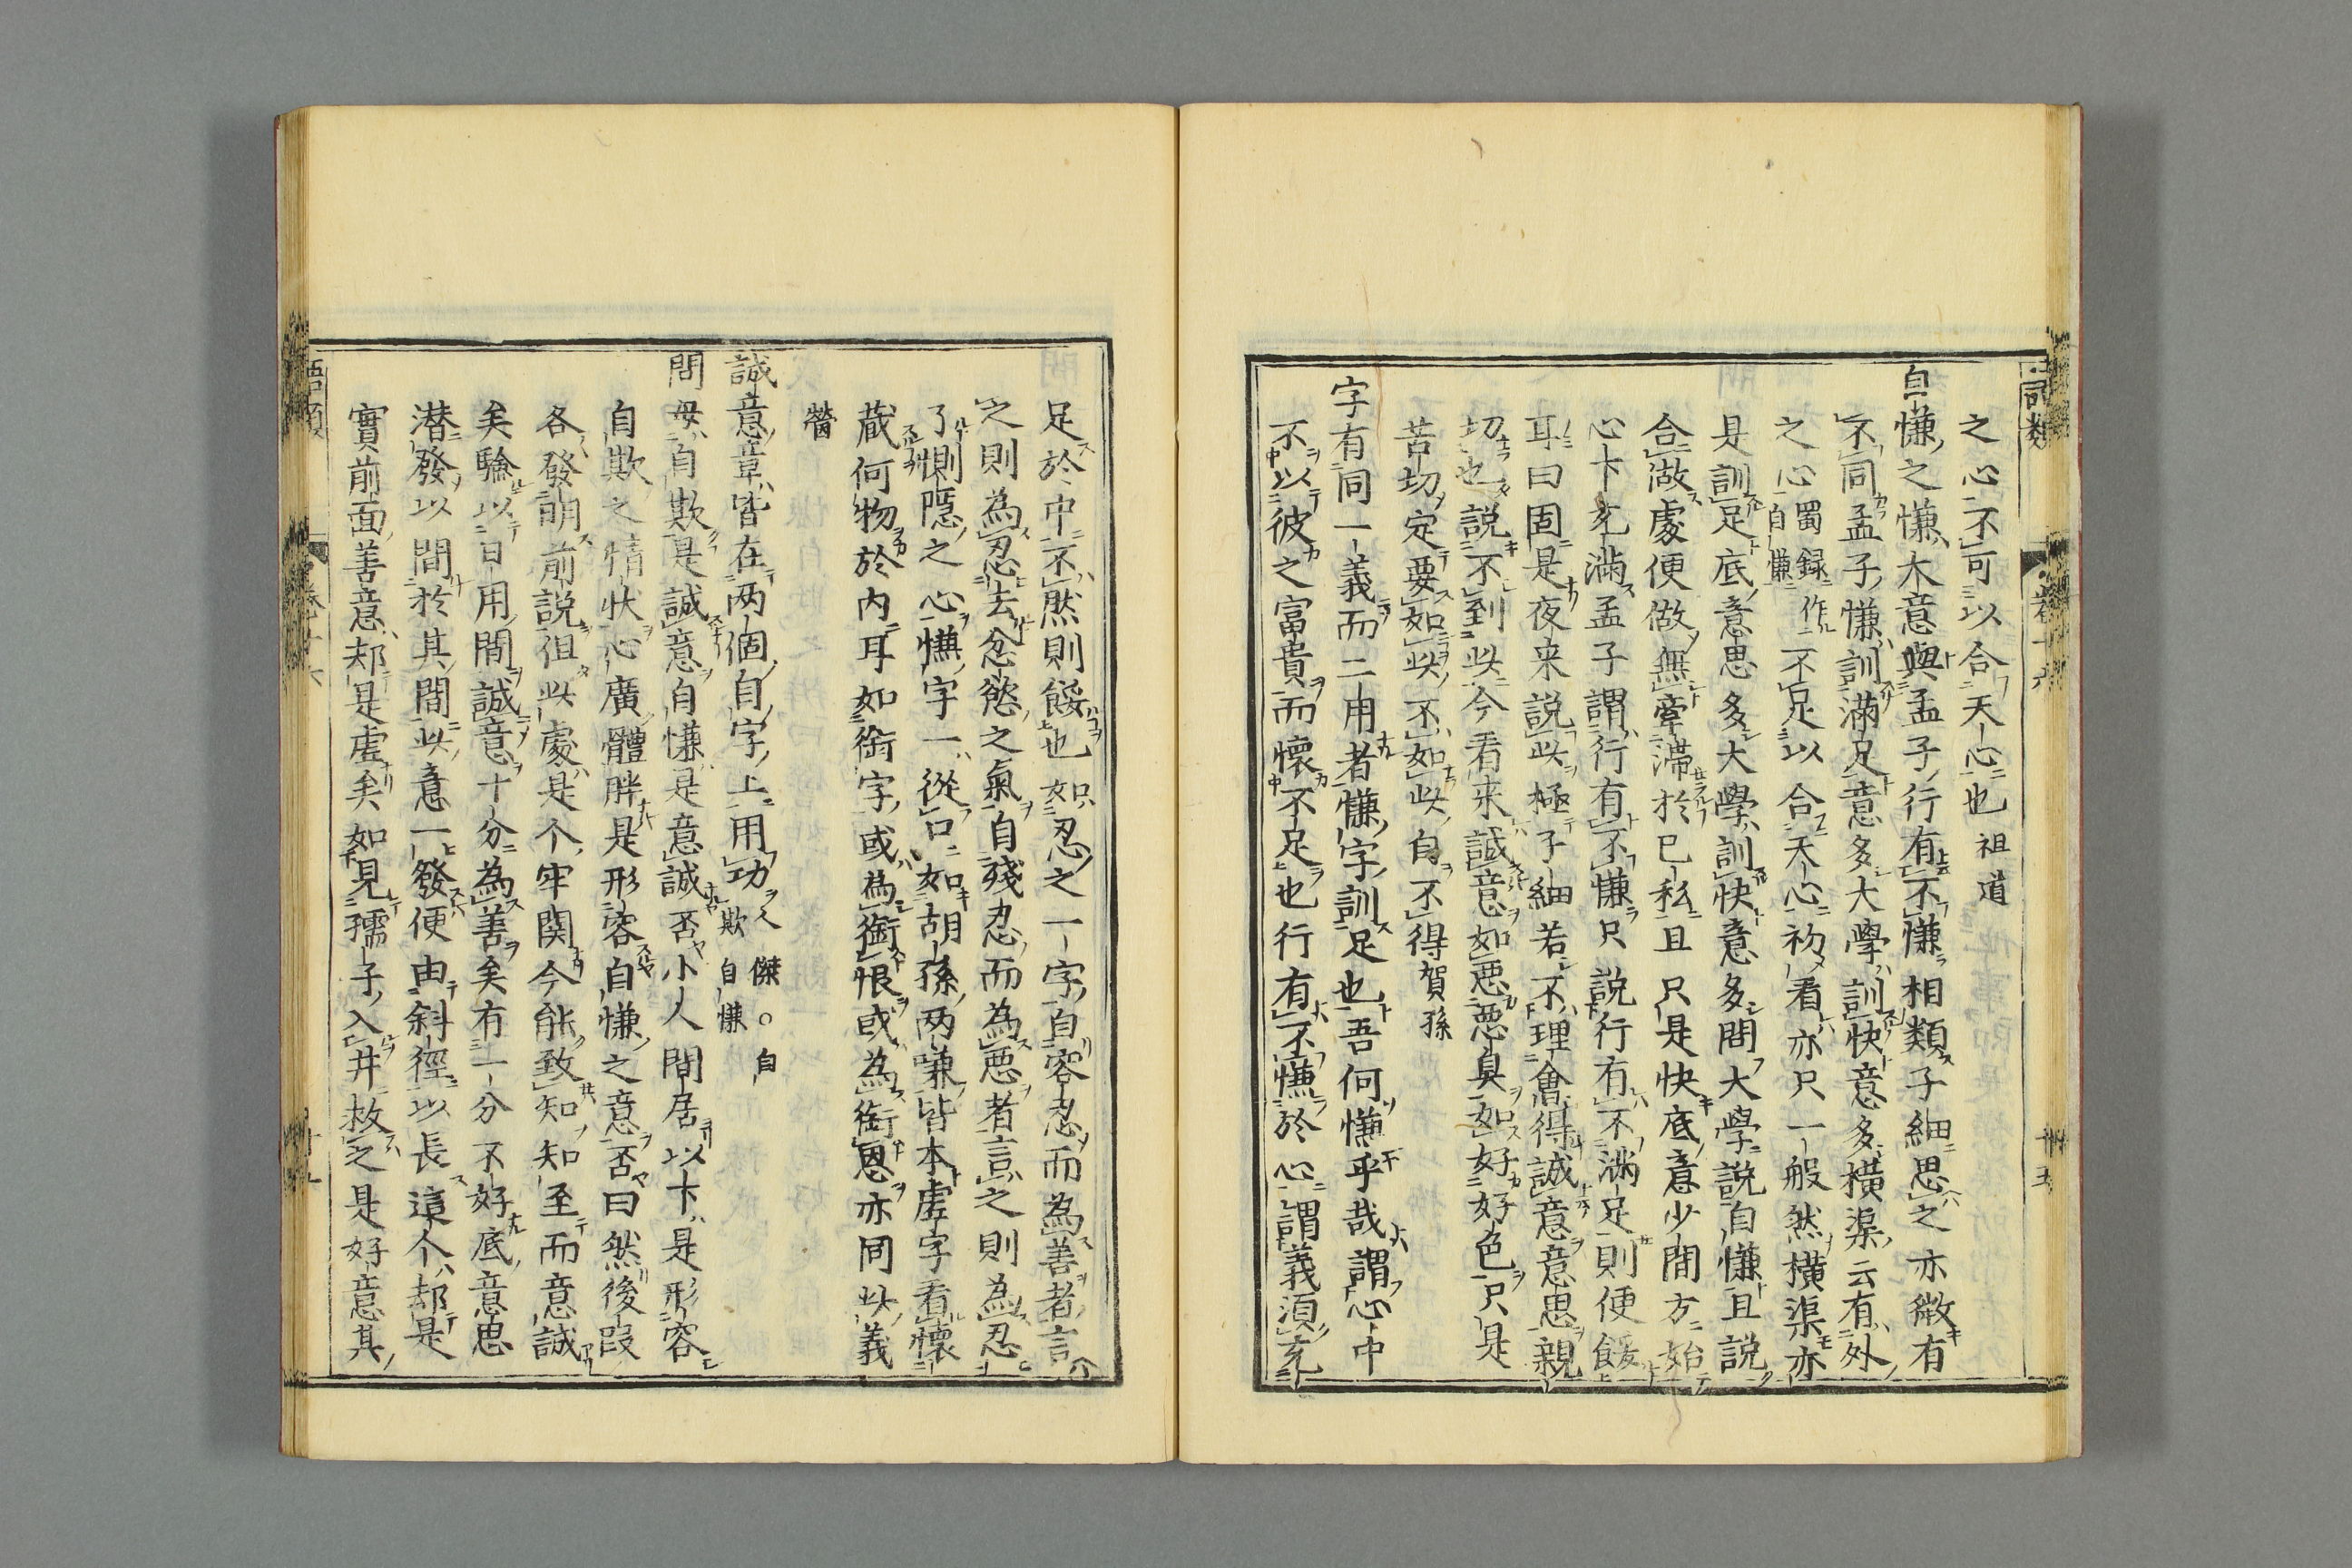 之心不可以合天心也祖道
自慊之慊大意與孟子行有不慊相類子細思之亦微有
不同孟子慊訓滿足意多大學訓快意多橫渠云有外
之心蜀録作自慊不足以合天心初看亦只一般然橫渠亦
是訓足底意思多大學訓快意多問大學說自慊且說
合做處便做無牽滯於己私且只是快底意少間方始
心下充滿孟子謂行有不慊只說行有不滿足則便餒
耳曰固是夜来說此極子細若不理會得誠意意思親
切也說不到此今看来誠意如惡惡臭如好好色只是
苦切定要如此不如此自不得賀孫
字有同一義而二用者慊字訓足也吾何慊乎哉謂心中
不以彼之富貴而懷不足也行有不慊於心謂義須充
足於中不然則餒也如忍之一字自容忍而為善者言
之則為忍去忿慾之氣自殘忍而為惡者言之則為忍
了惻隠之心慊字一從口如胡孫两嗛皆本虚字看懷
蔵何物於内耳如銜字或為銜恨或為銜恩亦同此義
㽦
誠意章皆在两個自字上用功人傑〇自欺自慊
問毋自欺是誠意自慊是意誠否小人間居以下是形容
自欺之情状心廣體胖是形容自慊之意否曰然後段
各發明前說但此處是个牢関今能致知知至而意誠
矣驗以日用間誠意十分為善矣有一分不好底意思
潜發以間於其間此意一發便由斜徑以長這个却是
實前面善意却是虚矣如見孺子入井救之是好意其